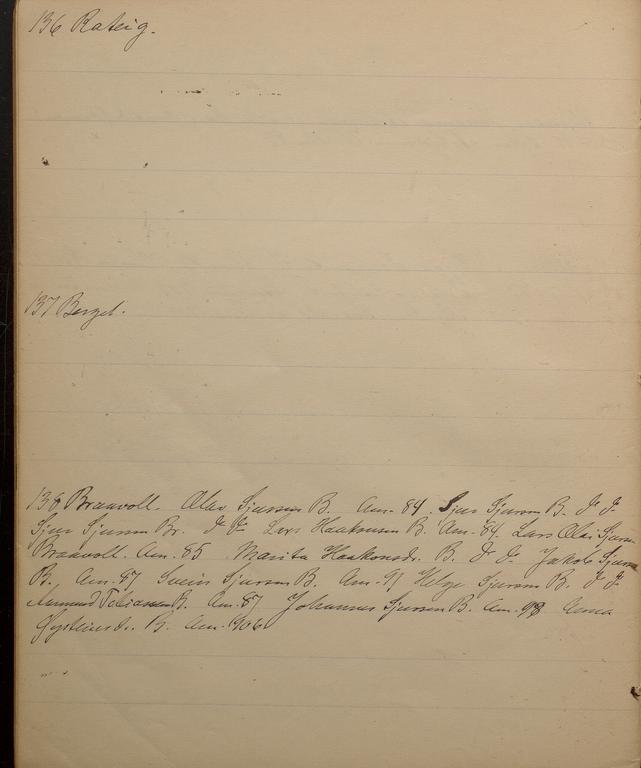 136 Rateig.
137 Berget.
138 Braavoll. Olav Sjursen B. Am. 84. Sjur Sjursen B. I I
Sjur Sjursen Br. I I Lars Haakonsen B. Am. 84. Lars Olai Sjursen
Braavoll. Am. 85. Marita Haakonsdr. B. I I. Jakob Sjursen
B. Am. 87 Svein Sjursen B. Am. 91 Helge Sjursen B. I I
Aamund Tobiassen B. Am. 87 Johannes Sjursen B. Am. 93 Anna
Øysteinsd. B. Am. 906